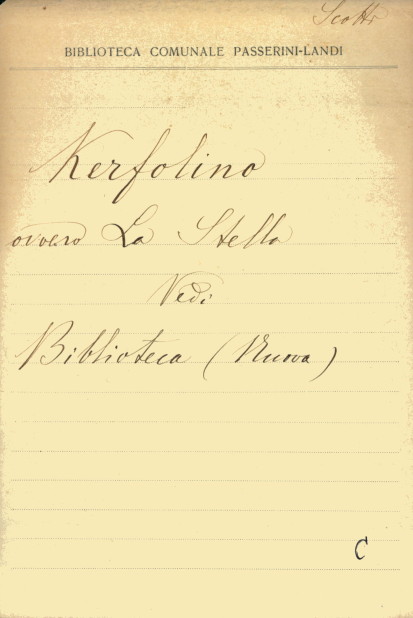 Scotti
BIBLIOTECA COMUNALE PASSERINI-LANDI
Kerfolino
ovvero La Stella
Vedi
Biblioteca (Nuova)
C